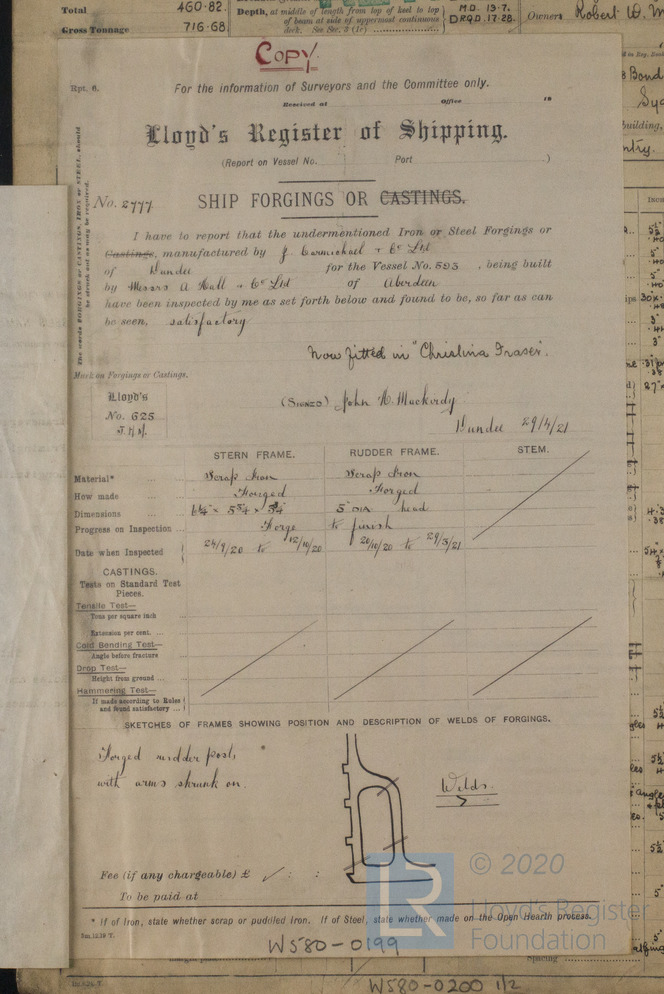 Total 460.82.
Gross Tonnage 716.68
Depth, at middle of length from top of keel to top
of beam at side of uppermost continuous
deck. See Sec. 3 (1c)
M.D. 19.7.
D.R.Q.D. 17.28.
Owners Robert W. M
COPY
Rpt. 6.
For the information of Surveyors and the Committee only.
Received at Office 19
Lloyd's Register of Shipping.
(Report on Vessel No. Port )
The words FORGINGS or CASTINGS, IRON or STEEL, should
be struck out as may be required.
No. 2777 SHIP FORGINGS OR CASTINGS.
I have to report that the undermentioned Iron or Steel Forgings or
Castings, manufactured by J. Carmichael & Co Ltd
of Dundee for the Vessel No. 595, being built
by Messrs A Hall & Co Ltd of Aberdeen
have been inspected by me as set forth below and found to be, so far as can
be seen, satisfactory
Now fitted in "Christina Fraser".
Mark on Forgings or Castings.
Lloyd's
No. 625
(Signed) John H. Mackirdy
Dundee 29/4/21
STERN FRAME. RUDDER FRAME. STEM.
Material* Scrap Iron Scrap Iron
How made Forged Forged
Dimensions 5" dia head
Progress on Inspection Forge to finish
Date when Inspected 24/9/20 to 12/10/20 20/10/20 to 29/3/21
CASTINGS.
Tests on Standard Test
Pieces.
Tensile Test—
Tons per square inch
Extension per cent.
Cold Bending Test—
Angle before fracture
Drop Test—
Height from ground
Hammering Test—
If made according to Rules
and found satisfactory
SKETCHES OF FRAMES SHOWING POSITION AND DESCRIPTION OF WELDS OF FORGINGS.
Forged rudder post,
with arms shrunk on.
Welds.
Fee (if any chargeable) £ : :
To be paid at
* If of Iron, state whether scrap or puddled Iron. If of Steel, state whether made on the Open Hearth process.
5m.12.19–T.
W580-0199
W580-0200 1/2
Spacing
LR
© 2020
Lloyd's Register
Foundation